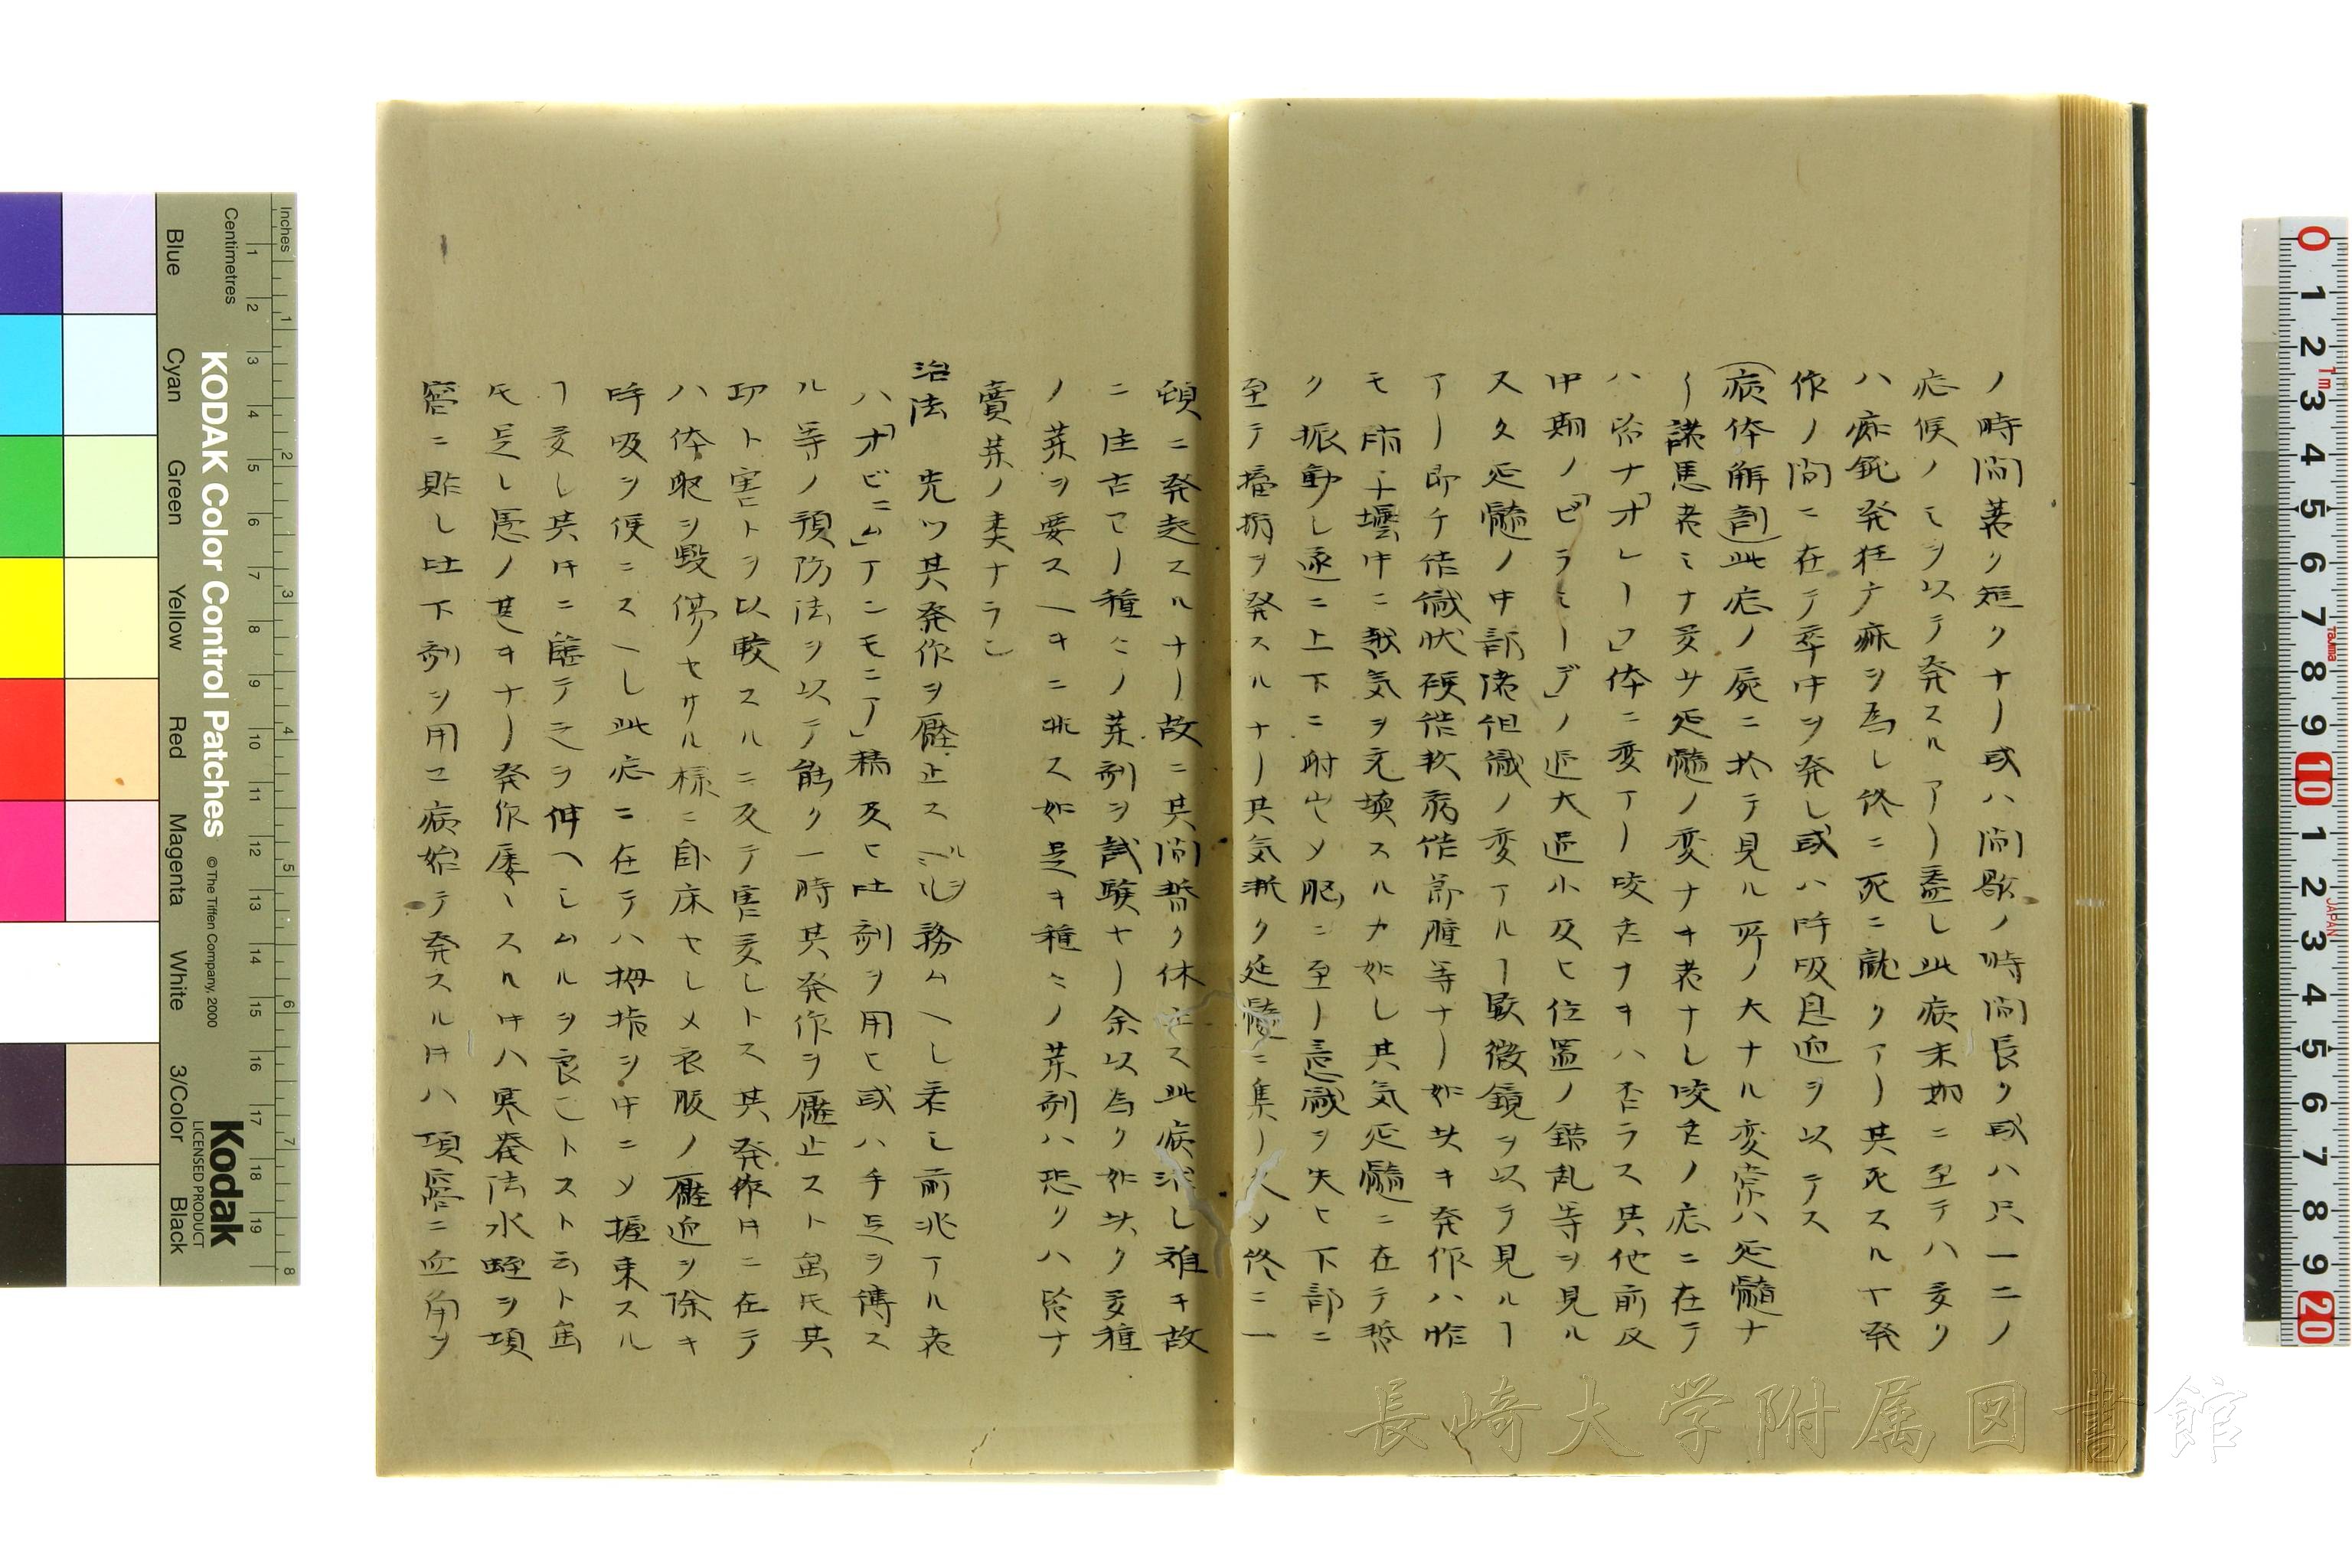 ノ時間甚タ短クナリ或ハ間歇ノ時間長ク或ハ只一二ノ
症候ノミヲ以テ発スルアリ盖し此病末期ニ至テハ多ク
ハ痴鈍発狂ナ痲ヲ為し終ニ死ニ就クアリ其死スルヤ発
作ノ間ニ在テ卒中ヲ発し或ハ呼吸息迫ヲ以テス
(病体解剖)此症ノ屍ニ於テ見ル所ノ大ナル変常ハ延髄ナ
リ諾馬老ミナ多サ延髄ノ変ナキ者ナし咬舌ノ症ニ在テ
ハ皆ナ「オレーフ」体ニ変アリ咬舌ナキハ否ラス其他前及
中期ノ「ピラミーデ」ノ過大過小及ヒ位置ノ錯乱等ヲ見ル
ス久延髄ノ中部諸組織ノ変アルヿ顕微鏡ヲ以テ見ルヿ
アリ即チ結織状硬結軟病結節腫等ナリ如此キ発作ハ昨
モ雨天曇中ニ越気ヲ充換スルカ如し其気延髄ニ在テ暫
ク振動し逐ニ上下ニ射セメ脳ニ至リ意識ヲ失ヒ下部ニ
至テ搐搦ヲ発スルナリ其気漸ク延髄ニ集リ久メ終ニ一
頓ニ発起スルナリ故ニ其間暫ク休止ス此病治し難キ故
ニ往古ヨリ種ミノ薬剤ヲ試験セリ余以為ク如此ク多種
ノ薬ヲ要スヘキニ非ス如是キ種ミノ薬剤ハ恐クハ皆ナ
賣薬ノ類ナラン
治法 先ツ其発作ヲ壓止スルヿヲ務ムヘし若し前兆アル者
ハ「オビニム」アンモニア」稿及ヒ吐剤ヲ用ヒ或ハ手足ヲ縛ス
ル等ノ預防法ヲ以テ能ク一時其発作ヲ壓止スト虽𪜈其
功ト害トヲ以較スルニ及テ害多しトス其発作中ニ在テ
ハ体躯ヲ毀傷セサル様ニ臥床セしメ衣服ノ壓迫ヲ除キ
呼吸ヲ便ニスヘし此症ニ在テハ拇指ヲ中ニメ握束スル
ヿ多し其中ニ臨テ之ヲ伸ヘしムルヲ良しトスト云ト虽
𪜈足し悪ノ甚キナリ発作屢々スル中ハ寒罨法水蛭ヲ項
窩ニ貼し吐下剤ヲ用ユ病始テ発スル中ハ項窩ニ血角ヲ
KODAK Color Control Patches
©The Tiffen Company, 2000
Kodak
LICENSED PRODUCT
Inches
Centimetres
Blue
Cyan
Green
Yellow
Red
Magenta
White
3/Color
Black
長崎大学附属図書館